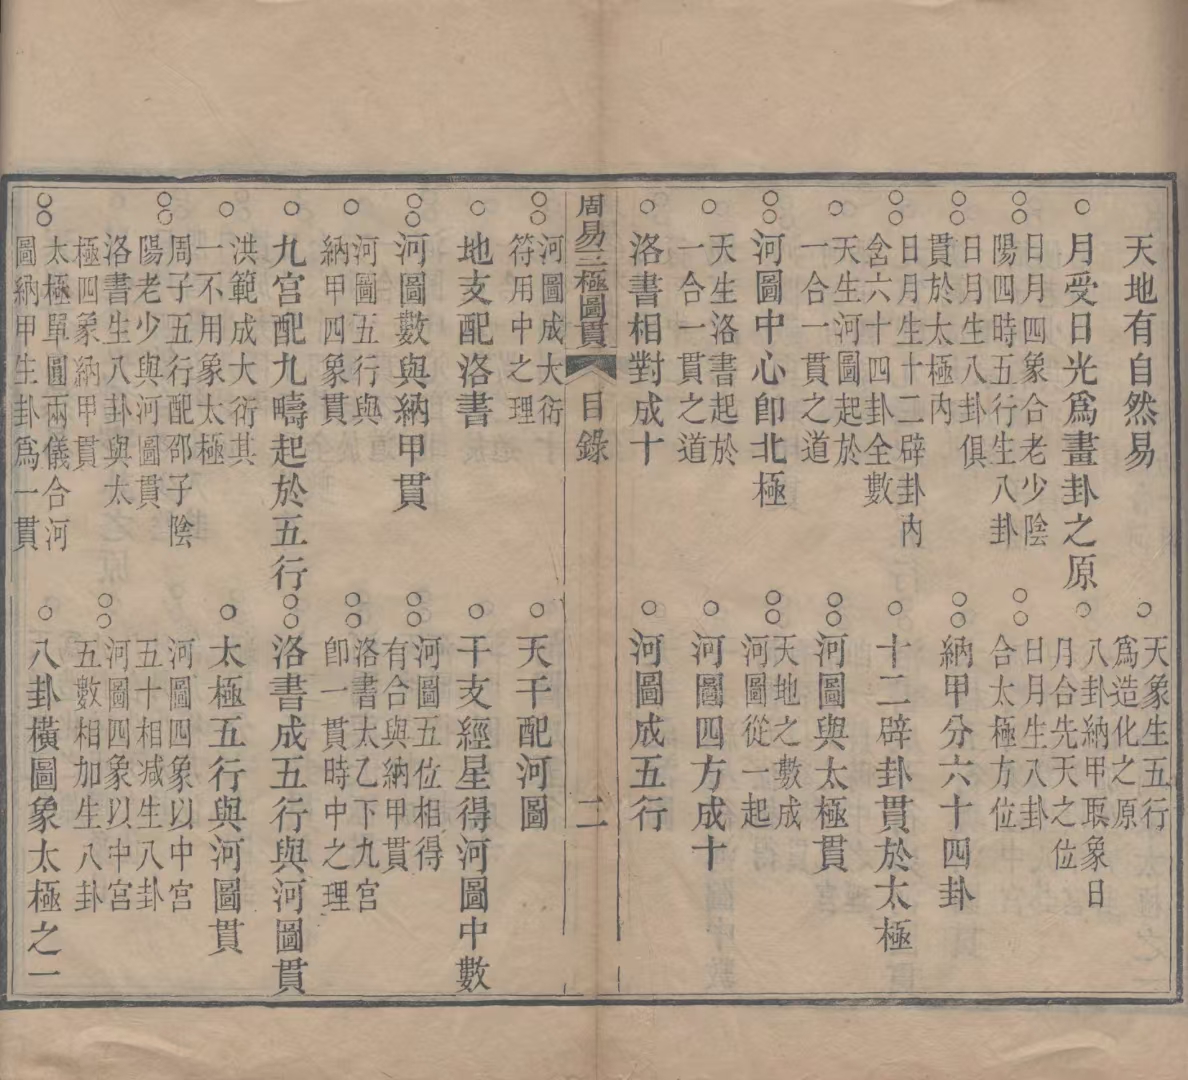 天地有自然易
○天象生五行
爲造化之原
○月受日光爲畫卦之原
○八卦納甲取象日
月合先天之位
○○日月四象合老少陰
陽四時五行生八卦
○○日月生八卦
合太極方位
○○日月生八卦俱
貫於太極内
○○納甲分六十四卦
○○日月生十二辟卦内
含六十四卦全數
○十二辟卦貫於太極
○天生河圖起於
一合一貫之道
○○河圖與太極貫
○○河圖中心卽北極
○○天地之數成
河圖從一起
○天生洛書起於
一合一貫之道
○河圖四方成十
○洛書相對成十
○河圖成五行
周易三極圖貫 目錄 二
○○河圖成大衍
符用中之理
○天干配河圖
○地支配洛書
○干支經星得河圖中數
○○河圖數與納甲貫
○○河圖五位相得
有合與納甲貫
○河圖五行與
納甲四象貫
○○洛書太乙下九宮
卽一貫時中之理
○九宮配九疇起於五行
○○洛書成五行與河圖貫
○洪範成大衍其
一不用象太極
○太極五行與河圖貫
○○周子五行配邵子陰
陽老少與河圖貫
河圖四象以中宮
五十相減生八卦
洛書生八卦與太
極四象納甲貫
○○河圖四象以中宮
五數相加生八卦
○○太極單圓兩儀合河
圖納甲生卦爲一貫
○八卦橫圖象太極之一